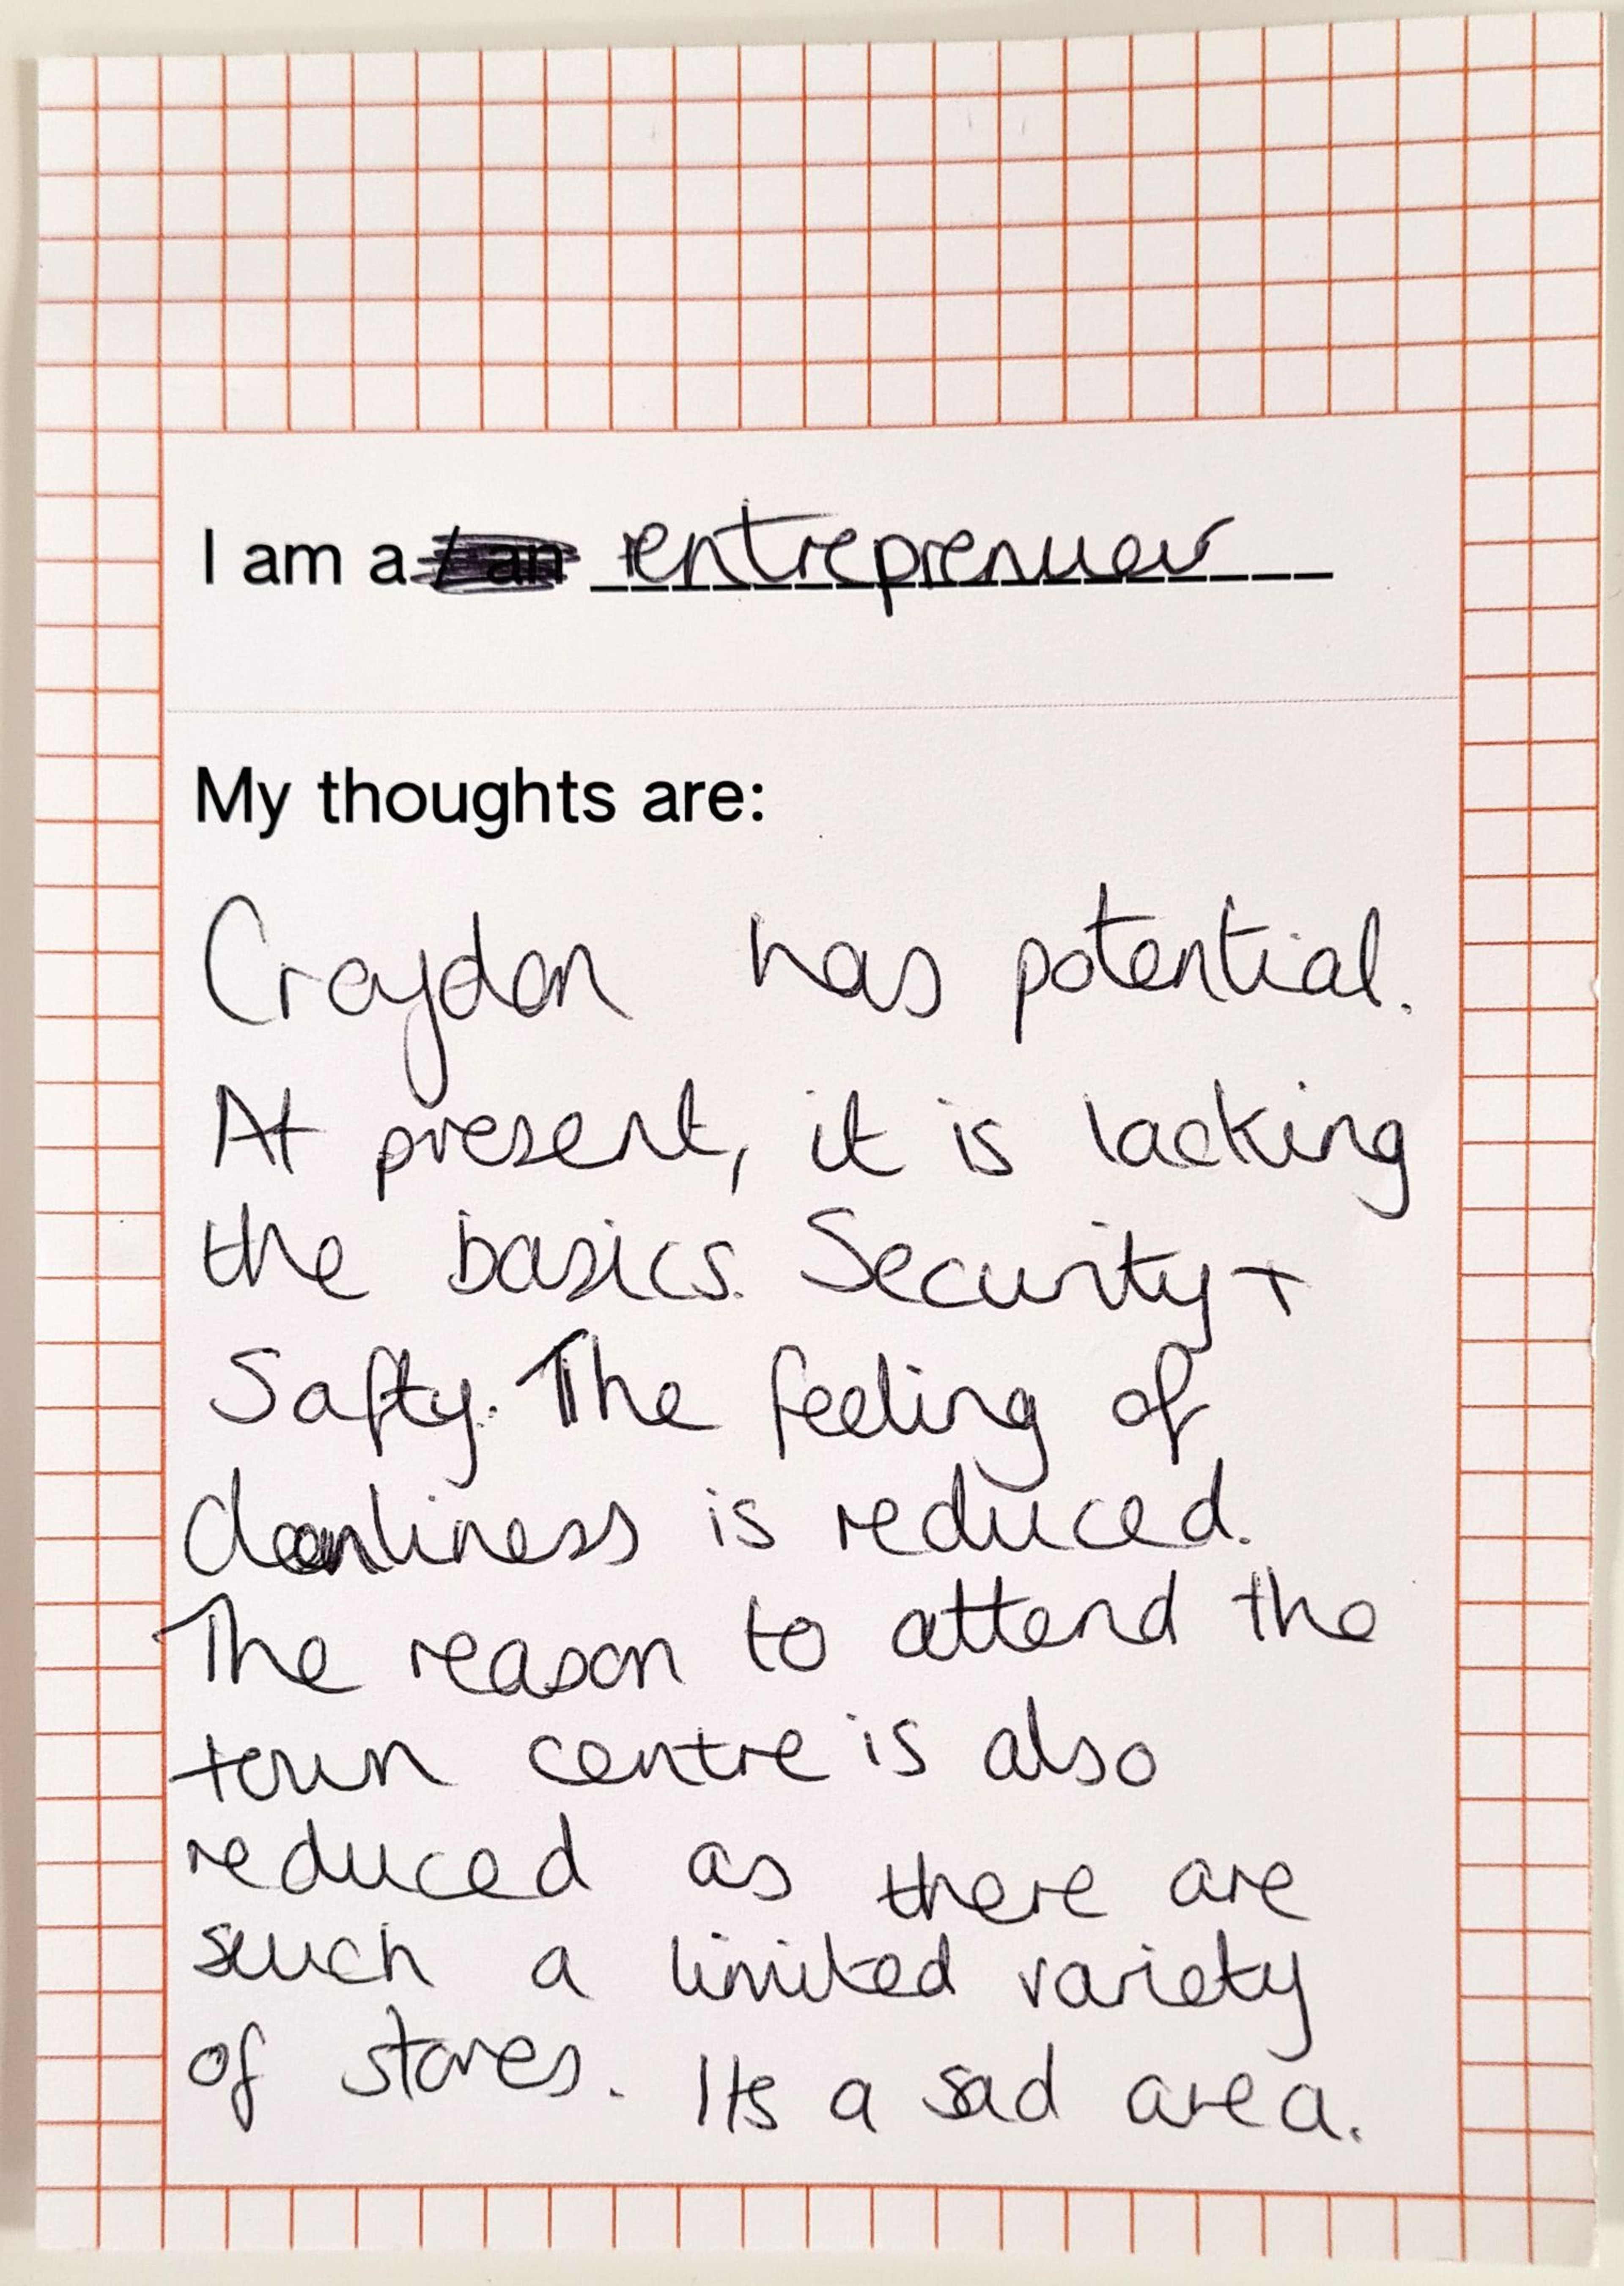 I am a / an entreprenuer
My thoughts are:
Croydon has potential.
At present, it is lacking
the basics. Security +
Safty. The feeling of
cleanliness is reduced.
The reason to attend the
town centre is also
reduced as there are
such a limited variety
of stores. Its a sad area.